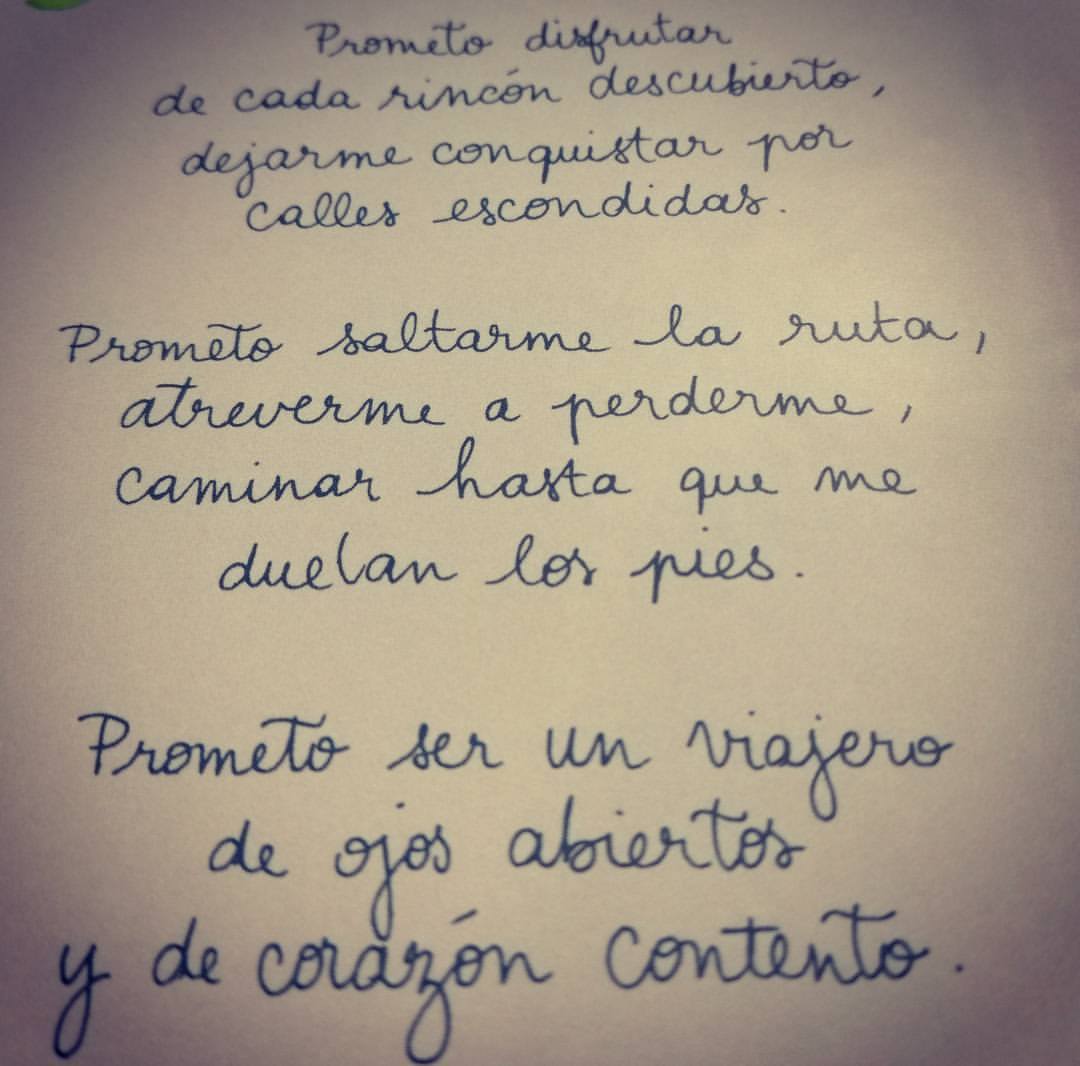 Prometo disfrutar
de cada rincón descubierto,
dejarme conquistar por
calles escondidas.
Prometo saltarme la ruta,
atreverme a perderme,
caminar hasta que me
duelan los pies.
Prometo ser un viajero
de ojos abiertos
y de corazón contento.